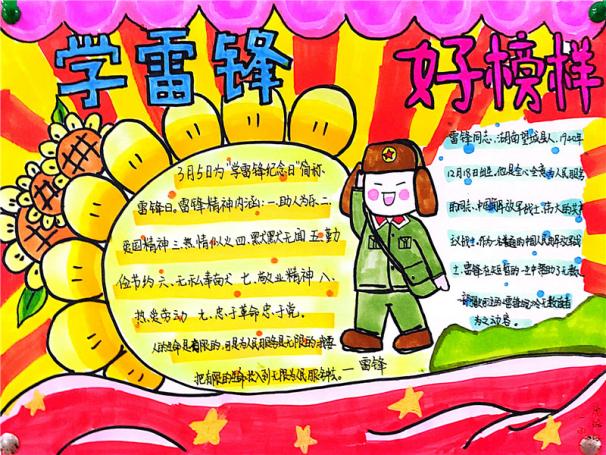 学雷锋 好榜样
3月5日为"学雷锋纪念日"简称
雷锋日。雷锋精神内涵:一.助人为乐 二.
爱国精神 三.热情似火 四.默默无闻 五.勤
俭节约 六.无私奉献 七.敬业精神 八.
热爱劳动 九.忠于革命忠于党。
人的生命是有限的,可是为人民服务是无限的,我要
把有限的生命投入到无限为民服务中去。—雷锋
雷锋同志,湖南望城县人,1940年
12月18日出生,他是全心全意为人民服务
的同志,中国解放军战士,伟大的共产
主义战士,作为一名普通的中国人民解放军战
士,雷锋在短暂的一生中帮助了无数
为之动容。